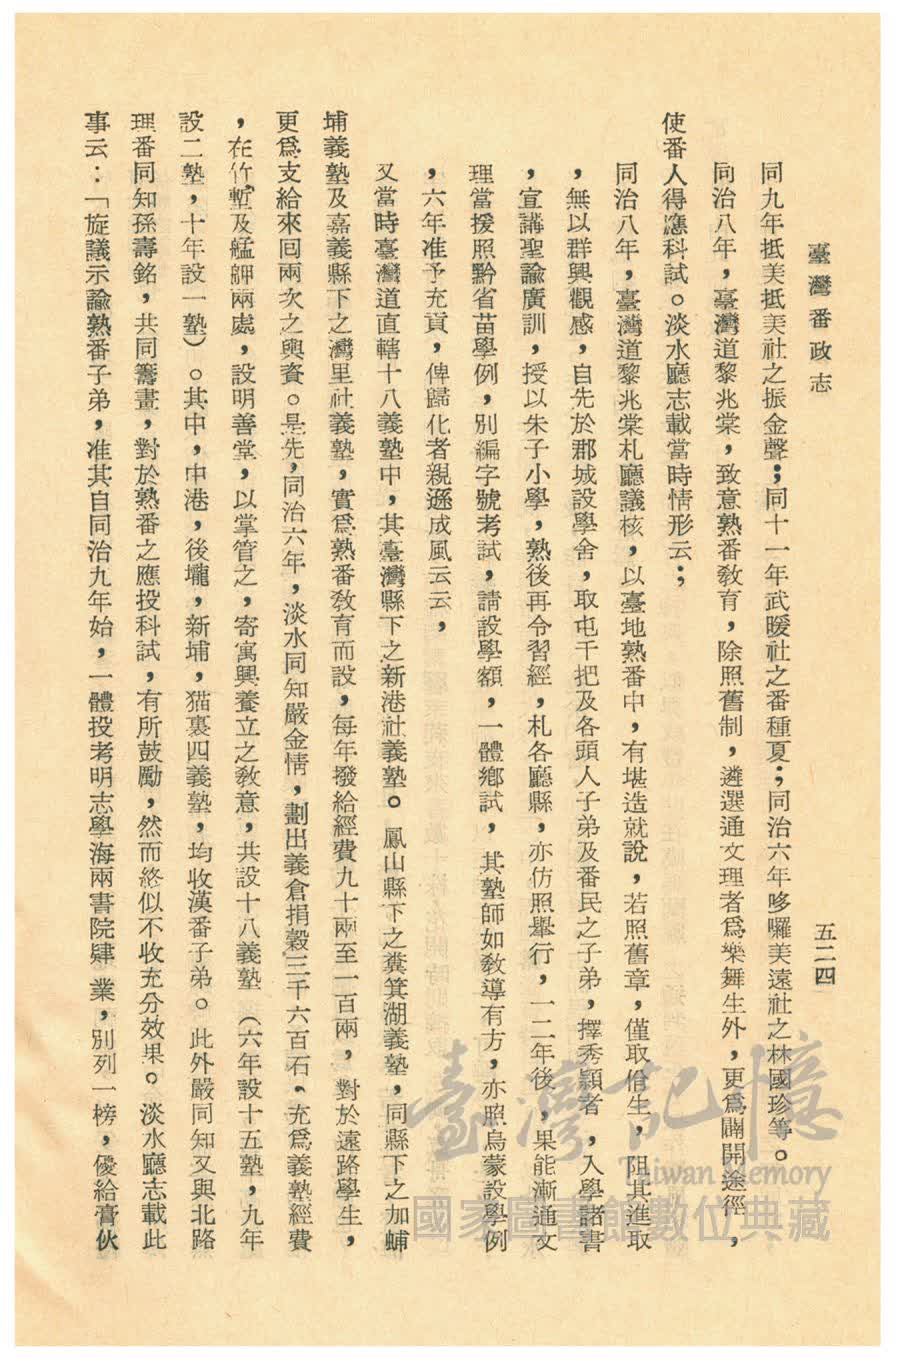 臺灣番政志
五二四
同九年抵美抵美社之振金聲；同十一年武暖社之番種夏；同治六年哆囉美遠社之林國珍等。
同治八年，臺灣道黎兆棠，致意熟番教育，除照舊制，遴選通文理者爲樂舞生外，更爲闢開途徑，
使番人得應科試。淡水廳志載當時情形云；
同治八年，臺灣道黎兆棠札廳議核，以臺地熟番中，有堪造就說，若照舊章，僅取佾生，阻其進取
，無以群興觀感，自先於郡城設學舍，取屯千把及各頭人子弟及番民之子弟，擇秀穎者，入學諸書
，宣講聖諭廣訓，授以朱子小學，熟後再令習經，札各廳縣，亦仿照舉行，一二年後，果能漸通文
理當援照黔省苗學例，別編字號考試，請設學額，一體鄉試，其塾師如教導有方，亦照烏蒙設學例
，六年准予充貢，俾歸化者親遜成風云云，
又當時臺灣道直轄十八義塾中，其臺灣縣下之新港社義塾。鳳山縣下之糞箕湖義塾，同縣下之加蚋
埔義塾及嘉義縣下之灣里社義塾，實爲熟番教育而設，每年撥給經費九十兩至一百兩，對於遠路學生，
更爲支給來回兩次之輿資。是先，同治六年，淡水同知嚴金清，劃出義倉捐穀三千六百石、充爲義塾經費
，在竹塹及艋舺兩處，設明善堂，以掌管之，寄寓興養立之教意，共設十八義塾（六年設十五塾，九年
設二塾，十年設一塾）。其中，中港，後壠，新埔，猫裏四義塾，均收漢番子弟。此外嚴同知又與北路
理番同知孫壽銘，共同籌畫，對於熟番之應投科試，有所鼓勵，然而終似不收充分效果。淡水廳志載此
事云：「旋議示諭熟番子弟，准其自同治九年始，一體投考明志學海兩書院肄業，別列一榜，優給膏伙
臺灣記憶
Taiwan Memory
國家圖書館數位典藏